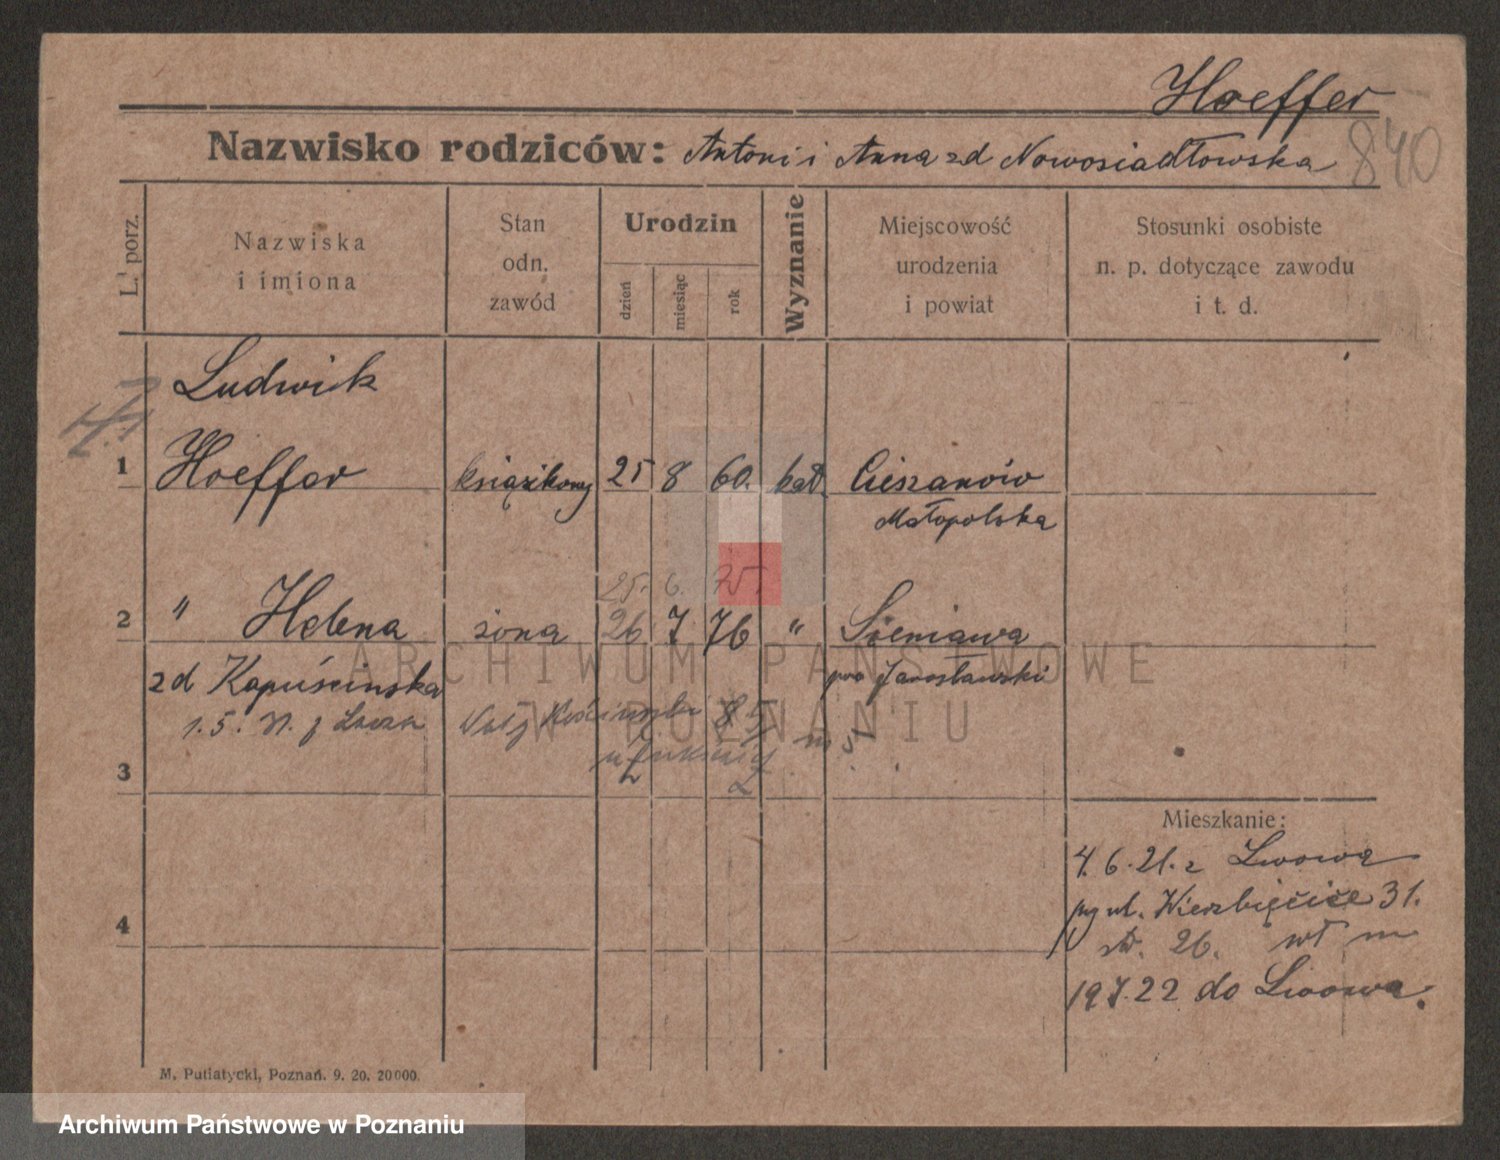 Hoeffer
Nazwisko rodziców: Antoni i Anna zd Nowosiadłowska
840
L. porz.
Nazwiska
i imiona
Stan
odn.
zawód
Urodzin
dzień
miesiąc
rok
Wyznanie
Miejscowość
urodzenia
i powiat
Stosunki osobiste
n. p. dotyczące zawodu
i t. d.
Ludwik
1 Hoeffer książkowy 25 8 60. kat. Cieszanów
Małopolska
25. 6. 75.
2 " Helena żona 26 7 76 " Sieniawa
zd Kapuścinska pow Jarosławski
1.5.
3
Mieszkanie:
4.6.21. z Lwowa
ul. Wierzbięcice 31.
4
26. wł m
19 7.22 do Lwowa.
M. Putiatycki, Poznań. 9. 20. 20000.
ARCHIWUM PAŃSTWOWE
W POZNANIU
Archiwum Państwowe w Poznaniu